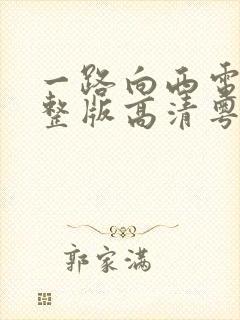 一路向西雷
整版高清粤
郭家满